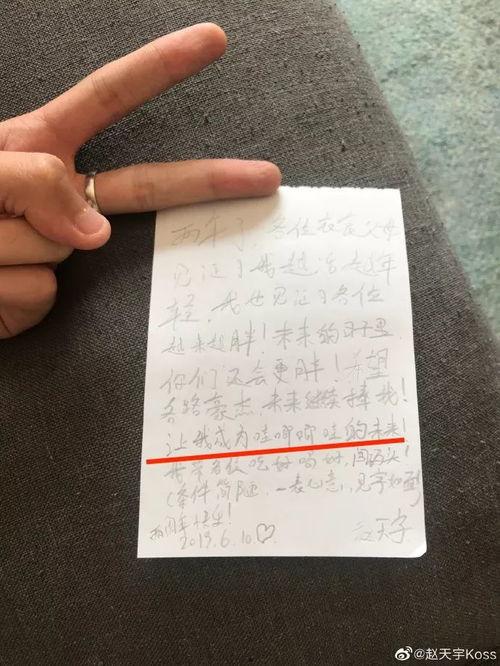 两年了，各位衣食父母
见证了我越活越年
轻，我也见证了各位
越来越胖！未来的日子里
你们还会更胖！希望
各路豪杰，未来继续捧我！
让我成为哇唧唧哇的未来！
带各位吃好喝好，闯码头！
(条件简陋，一表心意，见字如面)
两周年快乐！
2019.6.10.♡
赵天宇
@赵天宇Koss